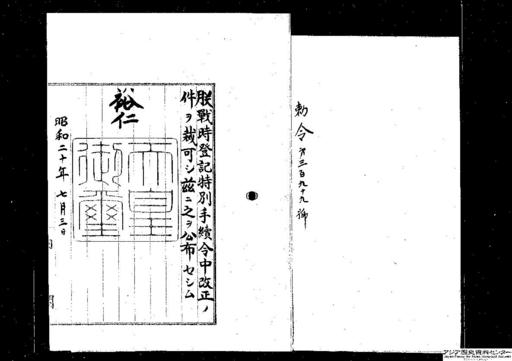 勅令第三百九十九号
朕戦時登記特別手続令中改正ノ
件ヲ裁可シ茲ニ之ヲ公布セシム
裕仁
天皇御璽
昭和二十年七月三日
アジア歴史資料センター